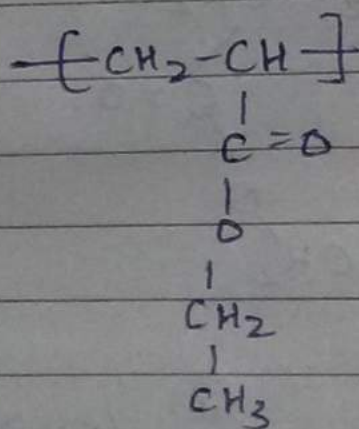 -[CH₂-CH-]
|
C=O
|
O
|
CH₂
|
CH₃